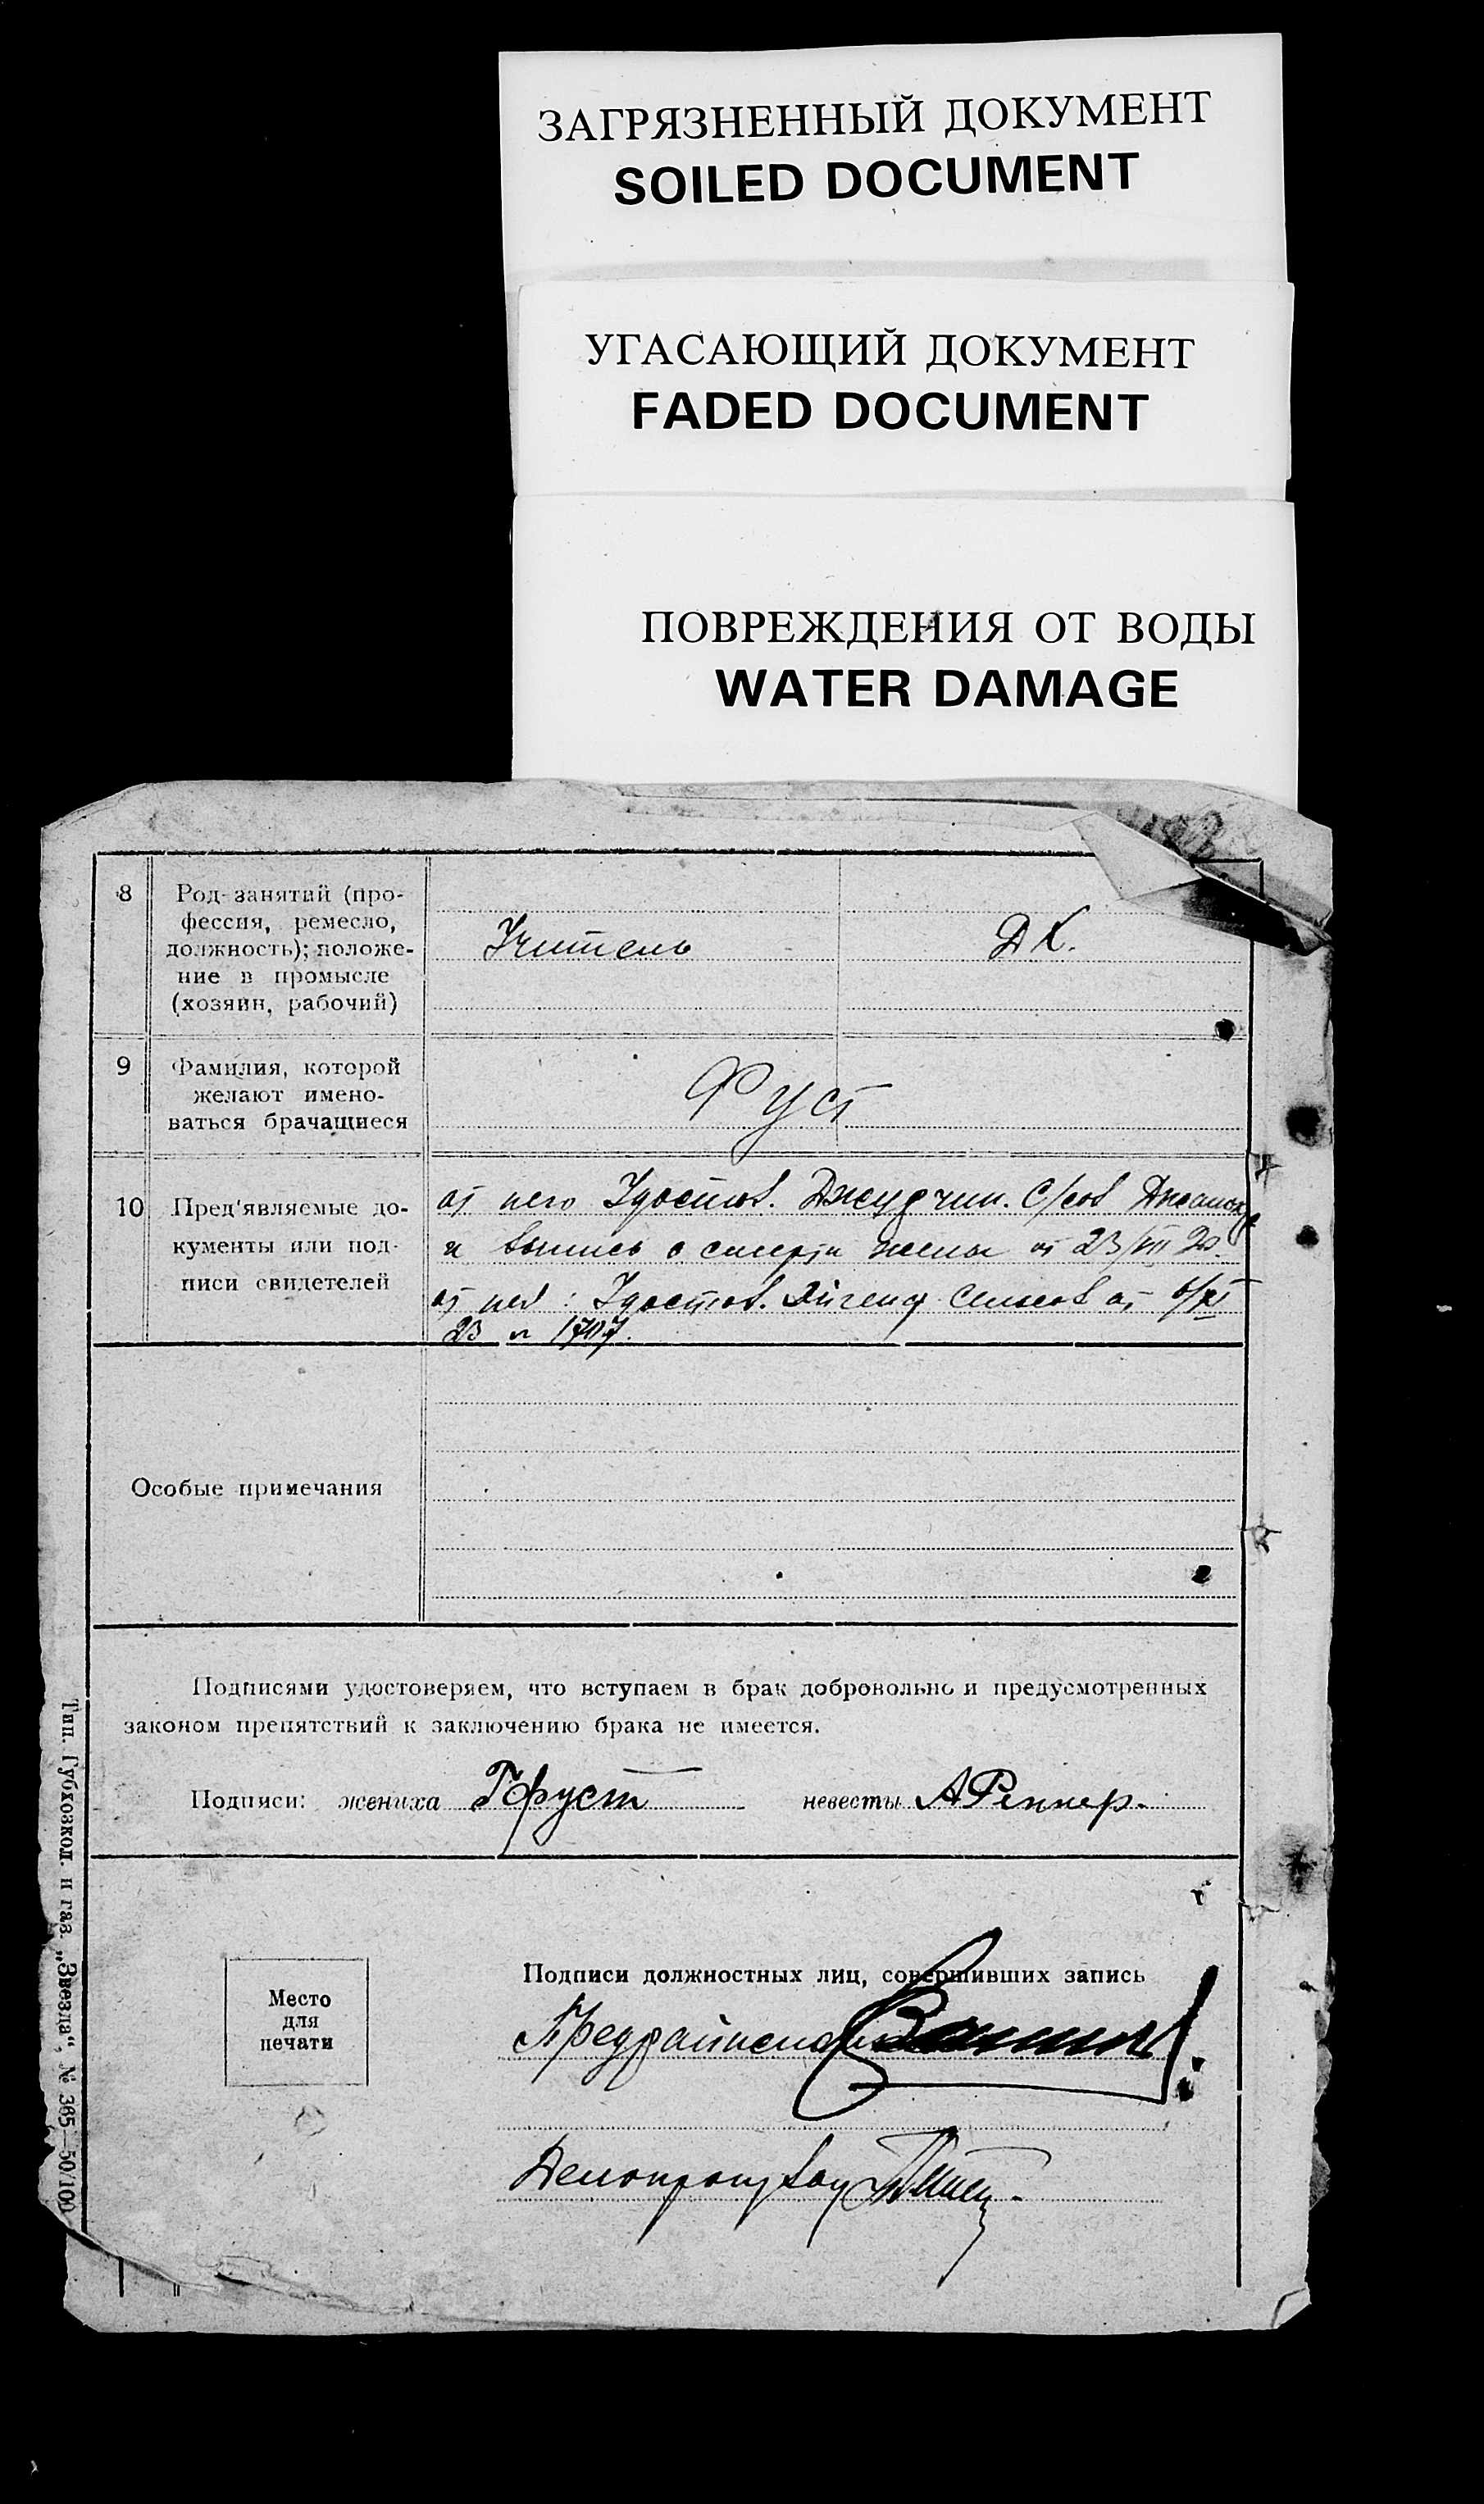 ЗАГРЯЗНЕННЫЙ ДОКУМЕНТ
SOILED DOCUMENT
УГАСАЮЩИЙ ДОКУМЕНТ
FADED DOCUMENT
ПОВРЕЖДЕНИЯ ОТ ВОДЫ
WATER DAMAGE
8
Род занятий (про-
фессия, ремесло,
должность); положе-
ние в промысле
(хозяин, рабочий)
Учитель
Д Х.
9
Фамилия, которой
желают имено-
ваться брачащиеся
Фуст
10
Пред'являемые до-
кументы или под-
писи свидетелей
от него Удостов. С/сов
и выпись о смерти жены от 23/VII
от нея: Удостов. от
23 г
Особые примечания
Подписями удостоверяем, что вступаем в брак добровольно и предусмотренных
законом препятствий к заключению брака не имеется.
Подписи: жениха ГФуст невесты АРеннер.
Подписи должностных лиц, совершивших запись
Место
для
печати
Делопроизвод
Тип. Губхозкол. и газ. „Звезда“, № 365—50/100